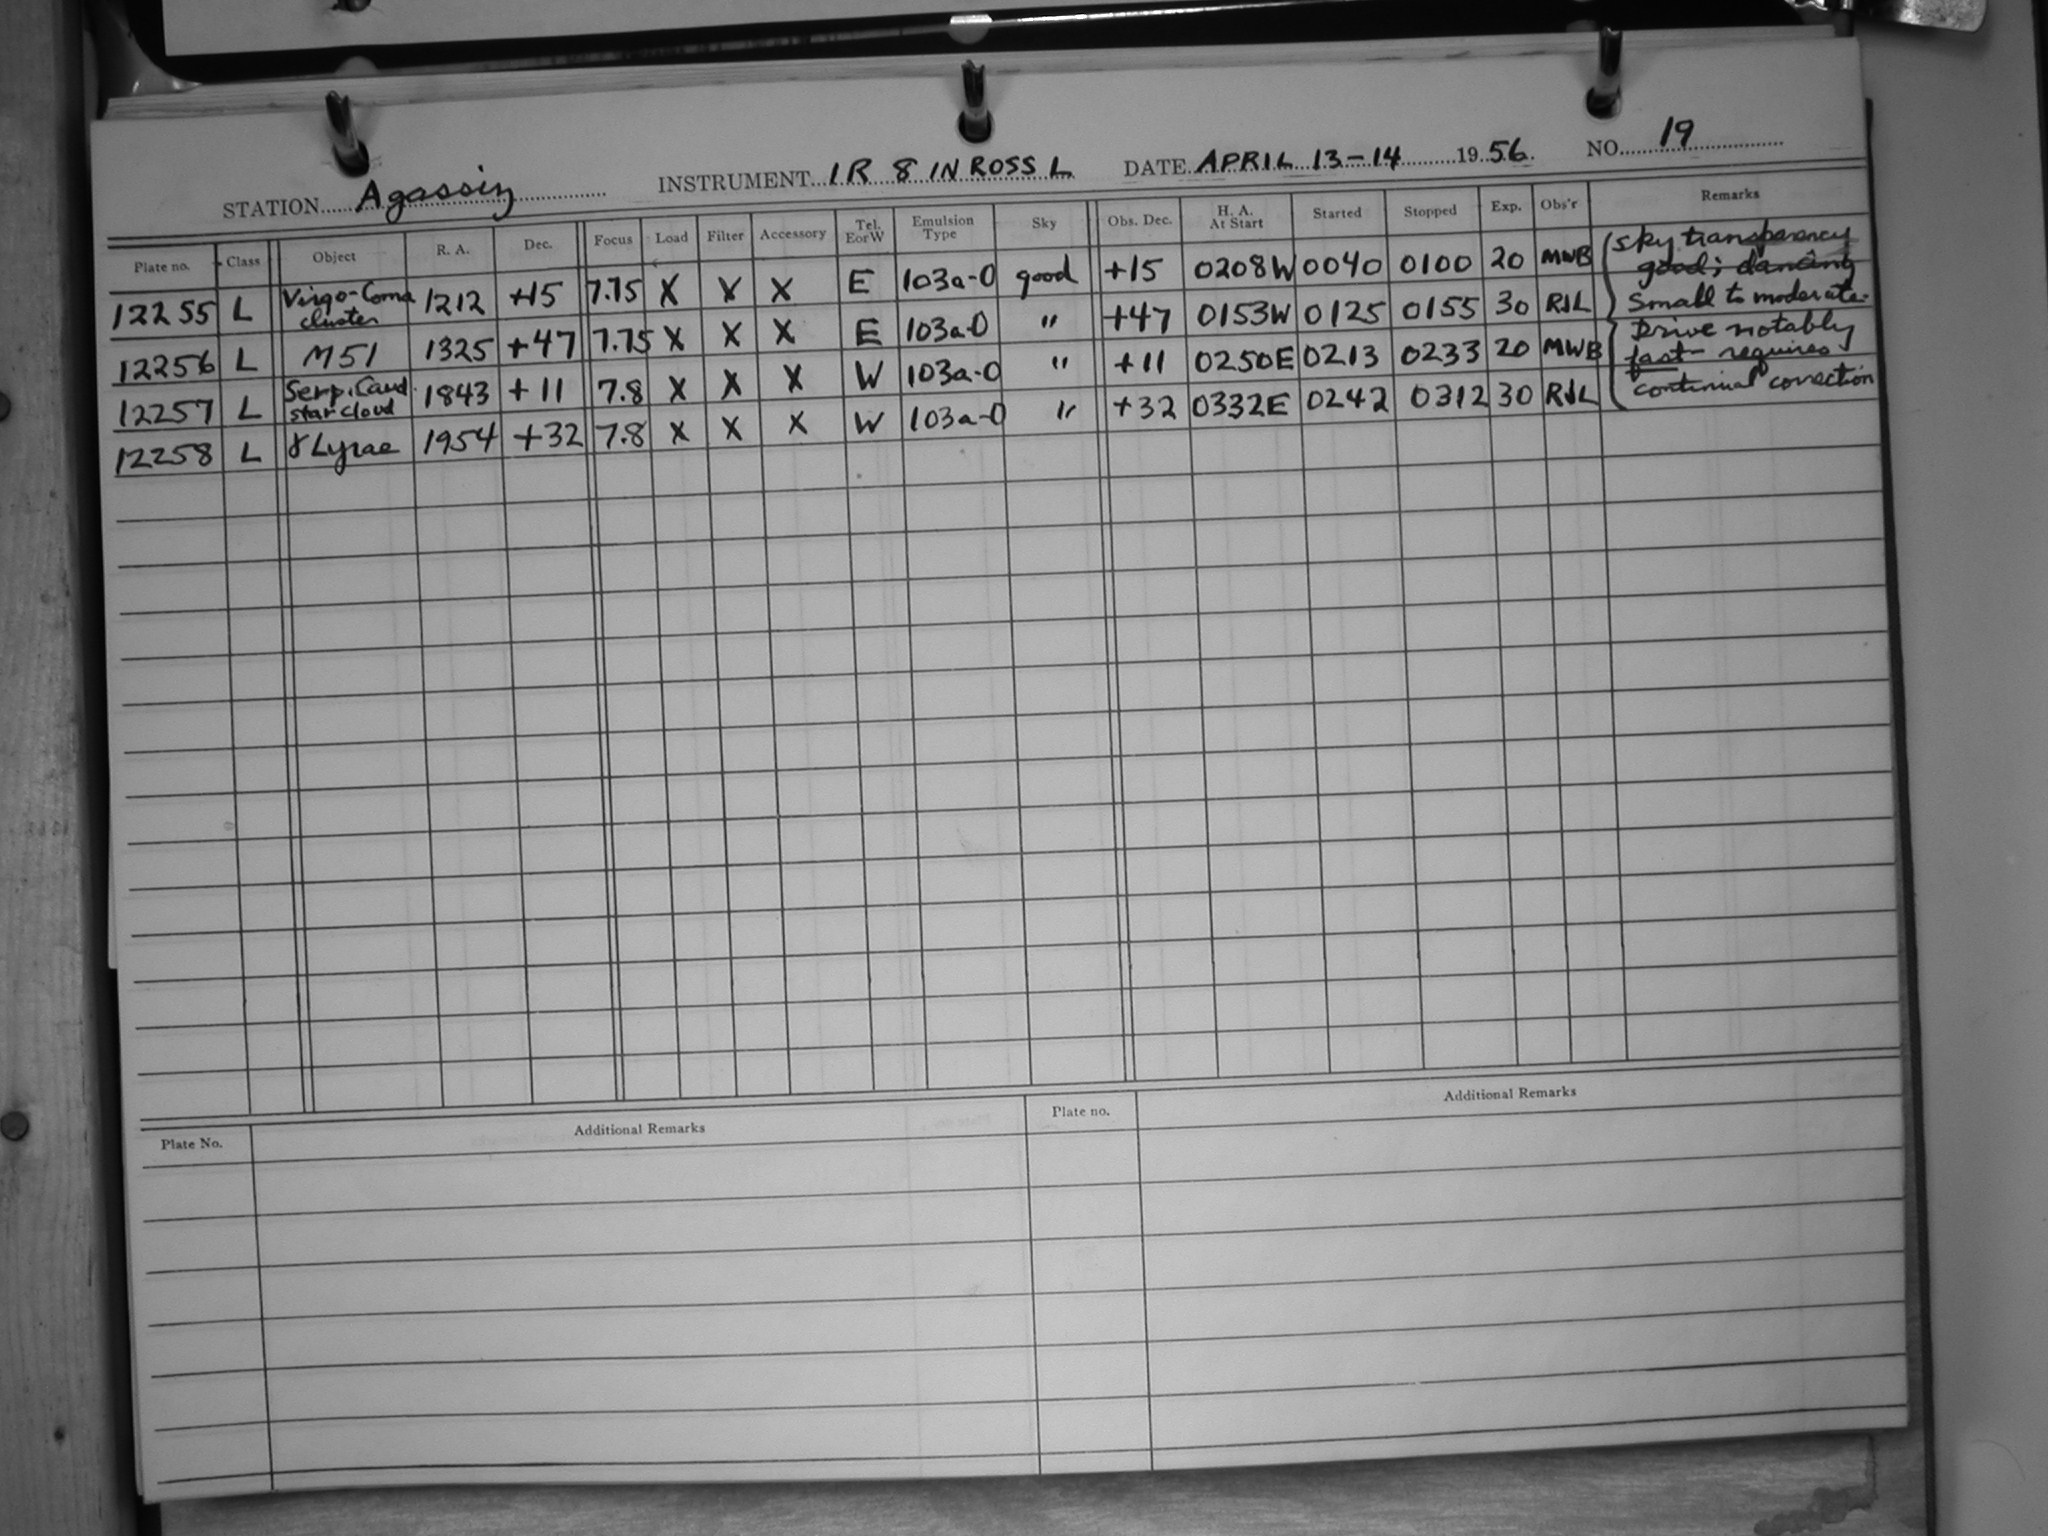 STATION Agassiz INSTRUMENT IR 8 IN ROSS L DATE APRIL 13-14 1956. NO. 19
Plate no. Class Object R. A. Dec. Focus Load Filter Accessory Tel. EorW Emulsion Type Sky Obs. Dec. H. A. At Start Started Stopped Exp. Obs'r Remarks
12255 L Virgo-Coma cluster 1212 +15 7.75 X X X E 103a-O good +15 0208W 0040 0100 20 MWB
12256 L M51 1325 +47 7.75 X X X E 103a-O " +47 0153W 0125 0155 30 RJL
12257 L Serp. Caud. star cloud 1843 +11 7.8 X X X W 103a-O " +11 0250E 0213 0233 20 MWB
12258 L γ Lyrae 1954 +32 7.8 X X X W 103a-O " +32 0332E 0242 0312 30 RJL
Sky transparency
good; dancing
small to moderate.
Drive notably
fast - requires
continual correction
Plate No. Additional Remarks Plate no. Additional Remarks